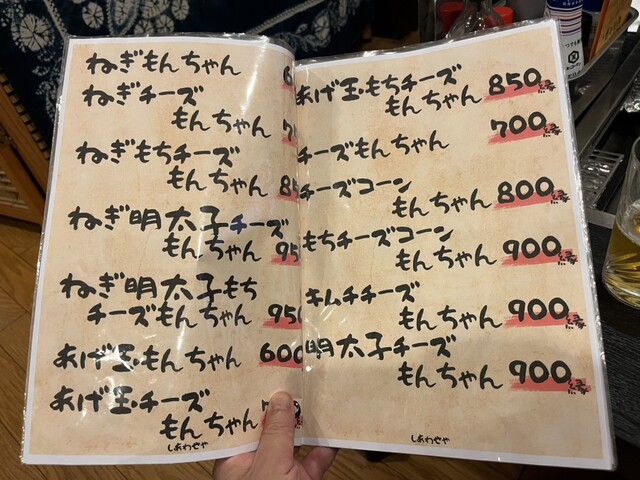 ねぎもんちゃん
ねぎチーズ
もんちゃん
ねぎもちチーズ
もんちゃん
ねぎ明太子チーズ
もんちゃん
ねぎ明太子もち
チーズもんちゃん 950
あげ玉・もんちゃん 600
あげ玉・チーズ
もんちゃん
しあわせや
あげ玉・もちチーズ
もんちゃん 850縁
チーズもんちゃん 700縁
チーズコーン
もんちゃん 800縁
もちチーズコーン
もんちゃん 900縁
キムチチーズ
もんちゃん 900縁
明太子チーズ
もんちゃん 900縁
しあわせや